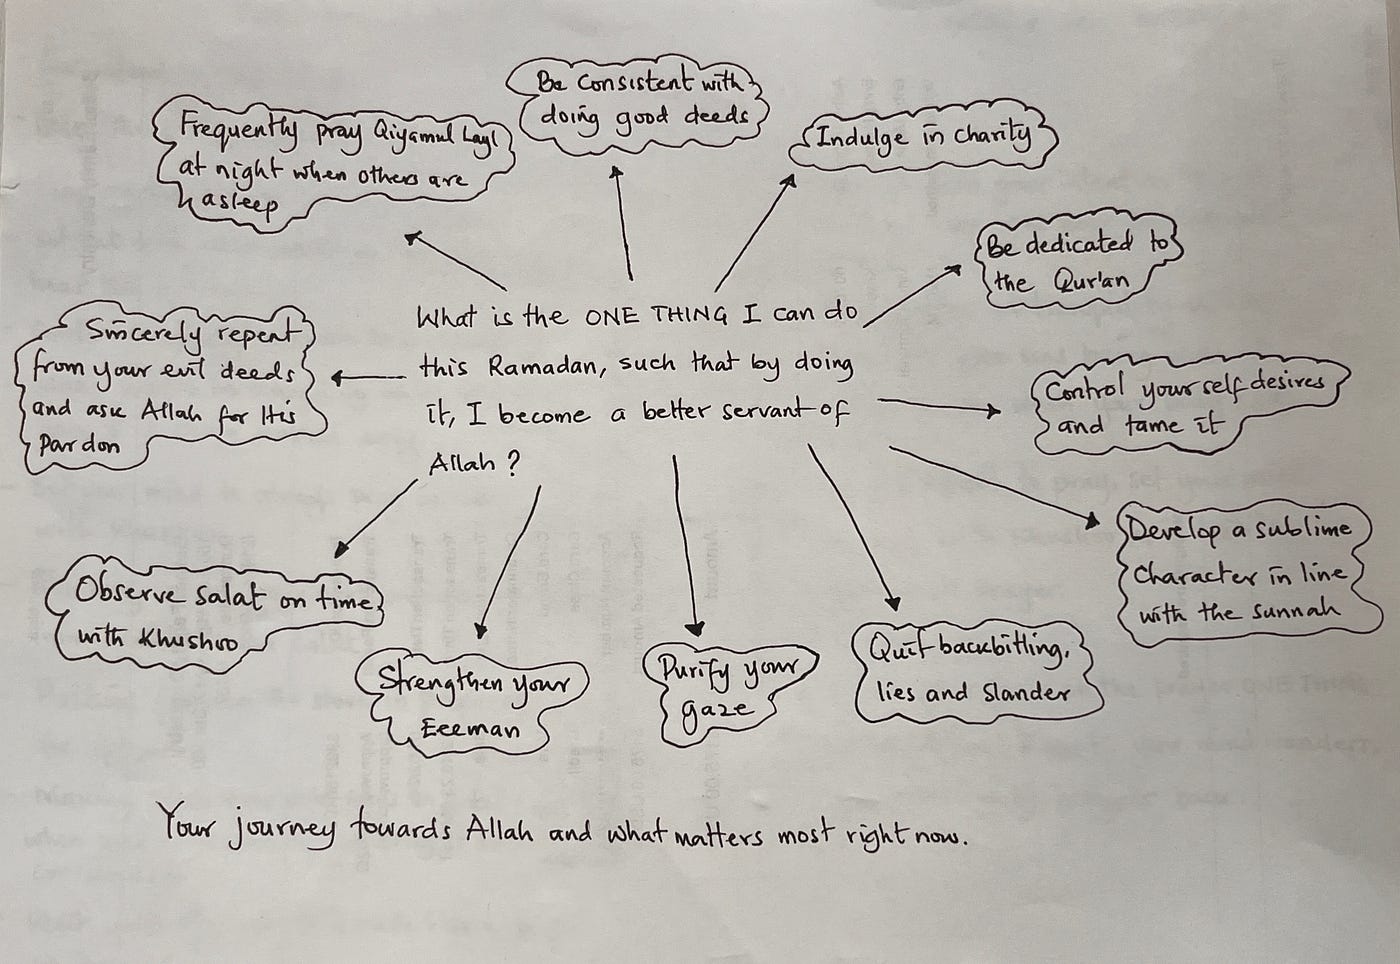 Be consistent with
doing good deeds
Frequently pray Qiyamul Layl
at night when others are
asleep
Indulge in charity
Be dedicated to
the Qur'an
What is the ONE THING I can do
this Ramadan, such that by doing
it, I become a better servant of
Allah ?
Sincerely repent
from your evil deeds
and ask Allah for His
Pardon
Control your self desires
and tame it
Develop a sublime
character in line
with the sunnah
Observe salat on time
with Khushoo
Strengthen your
Eeeman
Purify your
gaze
Quit backbitting,
lies and slander
Your journey towards Allah and what matters most right now.